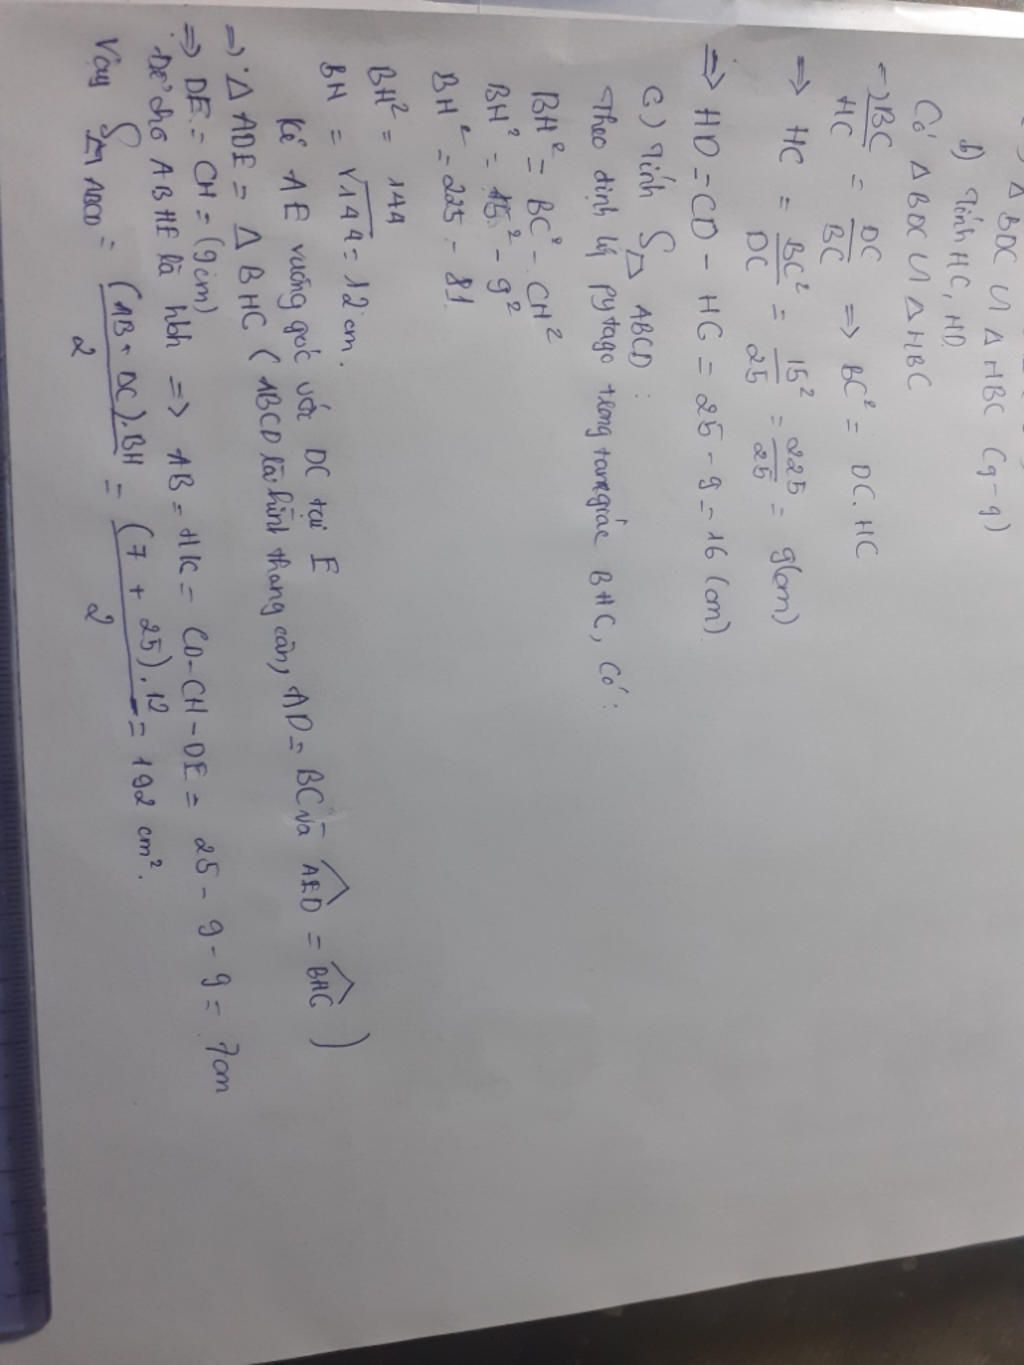 △ BDC ∽ △ HBC (g-g)
b) Tính HC, HD
Có △ BDC ∽ △ HBC
=> BC/HC = DC/BC => BC² = DC.HC
=> HC = BC²/DC = 15²/25 = 225/25 = 9(cm)
=> HD = CD - HC = 25 - 9 = 16 (cm)
c) Tính S△ ABCD :
Theo định lý pytago trong tam giác BHC, Có :
BH² = BC² - CH²
BH² = 15² - 9²
BH² = 225 - 81
BH² = 144
BH = √144 = 12 cm.
Kẻ AE vuông góc với DC tại E
=> △ ADE = △ BHC ( ABCD là hình thang cân, AD = BC và AED = BHC )
=> DE = CH = (9cm)
ABHE là hbh => AB = HK = CD - CH - DE = 25 - 9 - 9 = 7cm
Vậy S ABCD = (AB + DC).BH/2 = (7 + 25).12/2 = 192 cm².